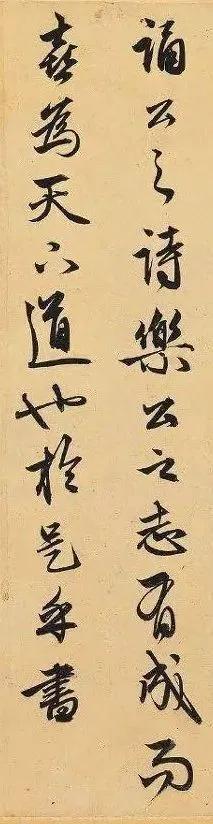 誦公之詩樂公之志有成而
喜為天下道也於是乎書